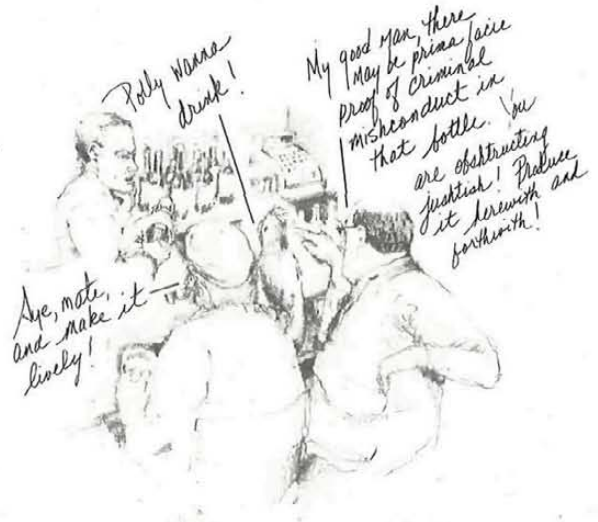 Polly wanna
drink!
My good man, there
may be prima facie
proof of criminal
mishconduct in
that bottle. You
are obshtructing
jushtish! Produce
it herewith and
forthwith!
Aye, mate,
and make it
lively!